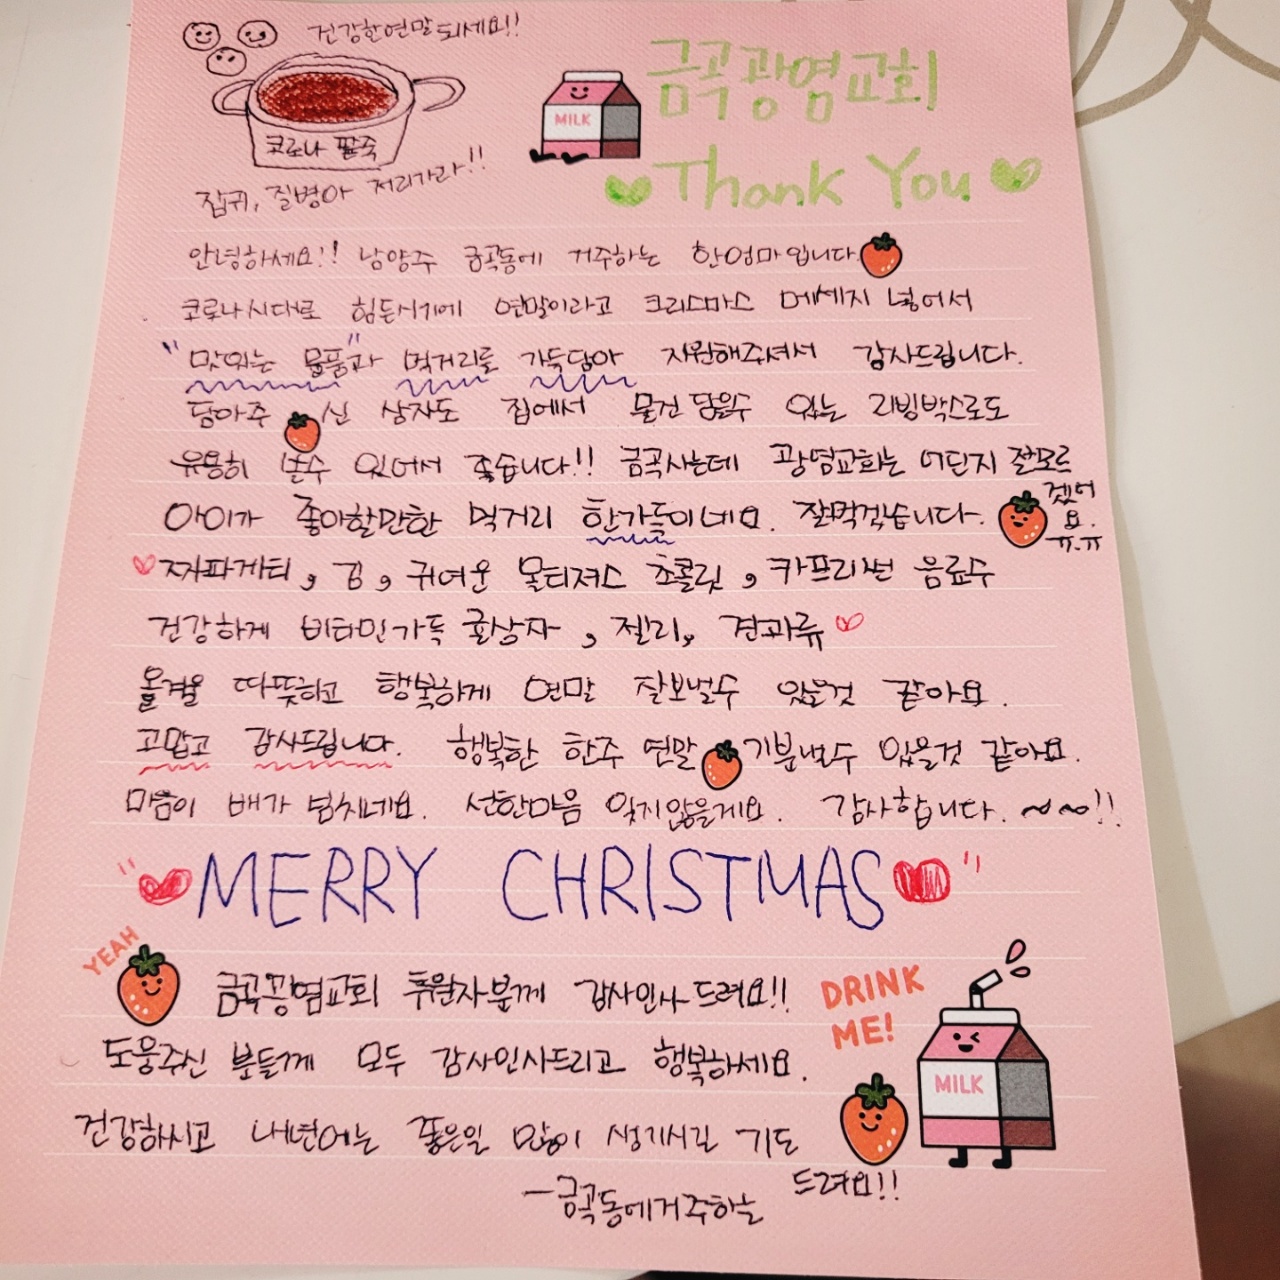 건강한연말 되세요!!
코로나 팥죽
잡귀, 질병아 저리가라!!
MILK
금곡광염교회
Thank You
안녕하세요!! 남양주 금곡동에 거주하는 한엄마입니다.
코로나시대로 힘든시기에 연말이라고 크리스마스 메세지 넣어서
"맛있는 물품"과 먹거리를 가득담아 지원해주셔서 감사드립니다.
담아주신 상자도 집에서 물건 담을수 있는 리빙박스로도
유용히 쓸수 있어서 좋습니다!! 금곡사는데 광염교회는 어딘지 잘모르
겠어요. ㅠ.ㅠ
아이가 좋아할만한 먹거리 한가득이네요. 잘먹겠습니다.
짜파게티, 김, 귀여운 몰티져스 초콜릿, 카프리썬 음료수
건강하게 비타민가득 귤상자, 젤리, 견과류
올겨울 따뜻하고 행복하게 연말 잘보낼수 있을것 같아요.
고맙고 감사드립니다. 행복한 한주 연말 기분낼수 있을것 같아요.
마음이 배가 넘치네요. 선한마음 잊지않을게요. 감사합니다. ~~!!
"MERRY CHRISTMAS"
YEAH
금곡광염교회 후원자분께 감사인사 드려요!!
DRINK
ME!
도움주신 분들께 모두 감사인사드리고 행복하세요.
MILK
건강하시고 내년에는 좋은일 많이 생기시길 기도
드려요!!
-금곡동에거주하는